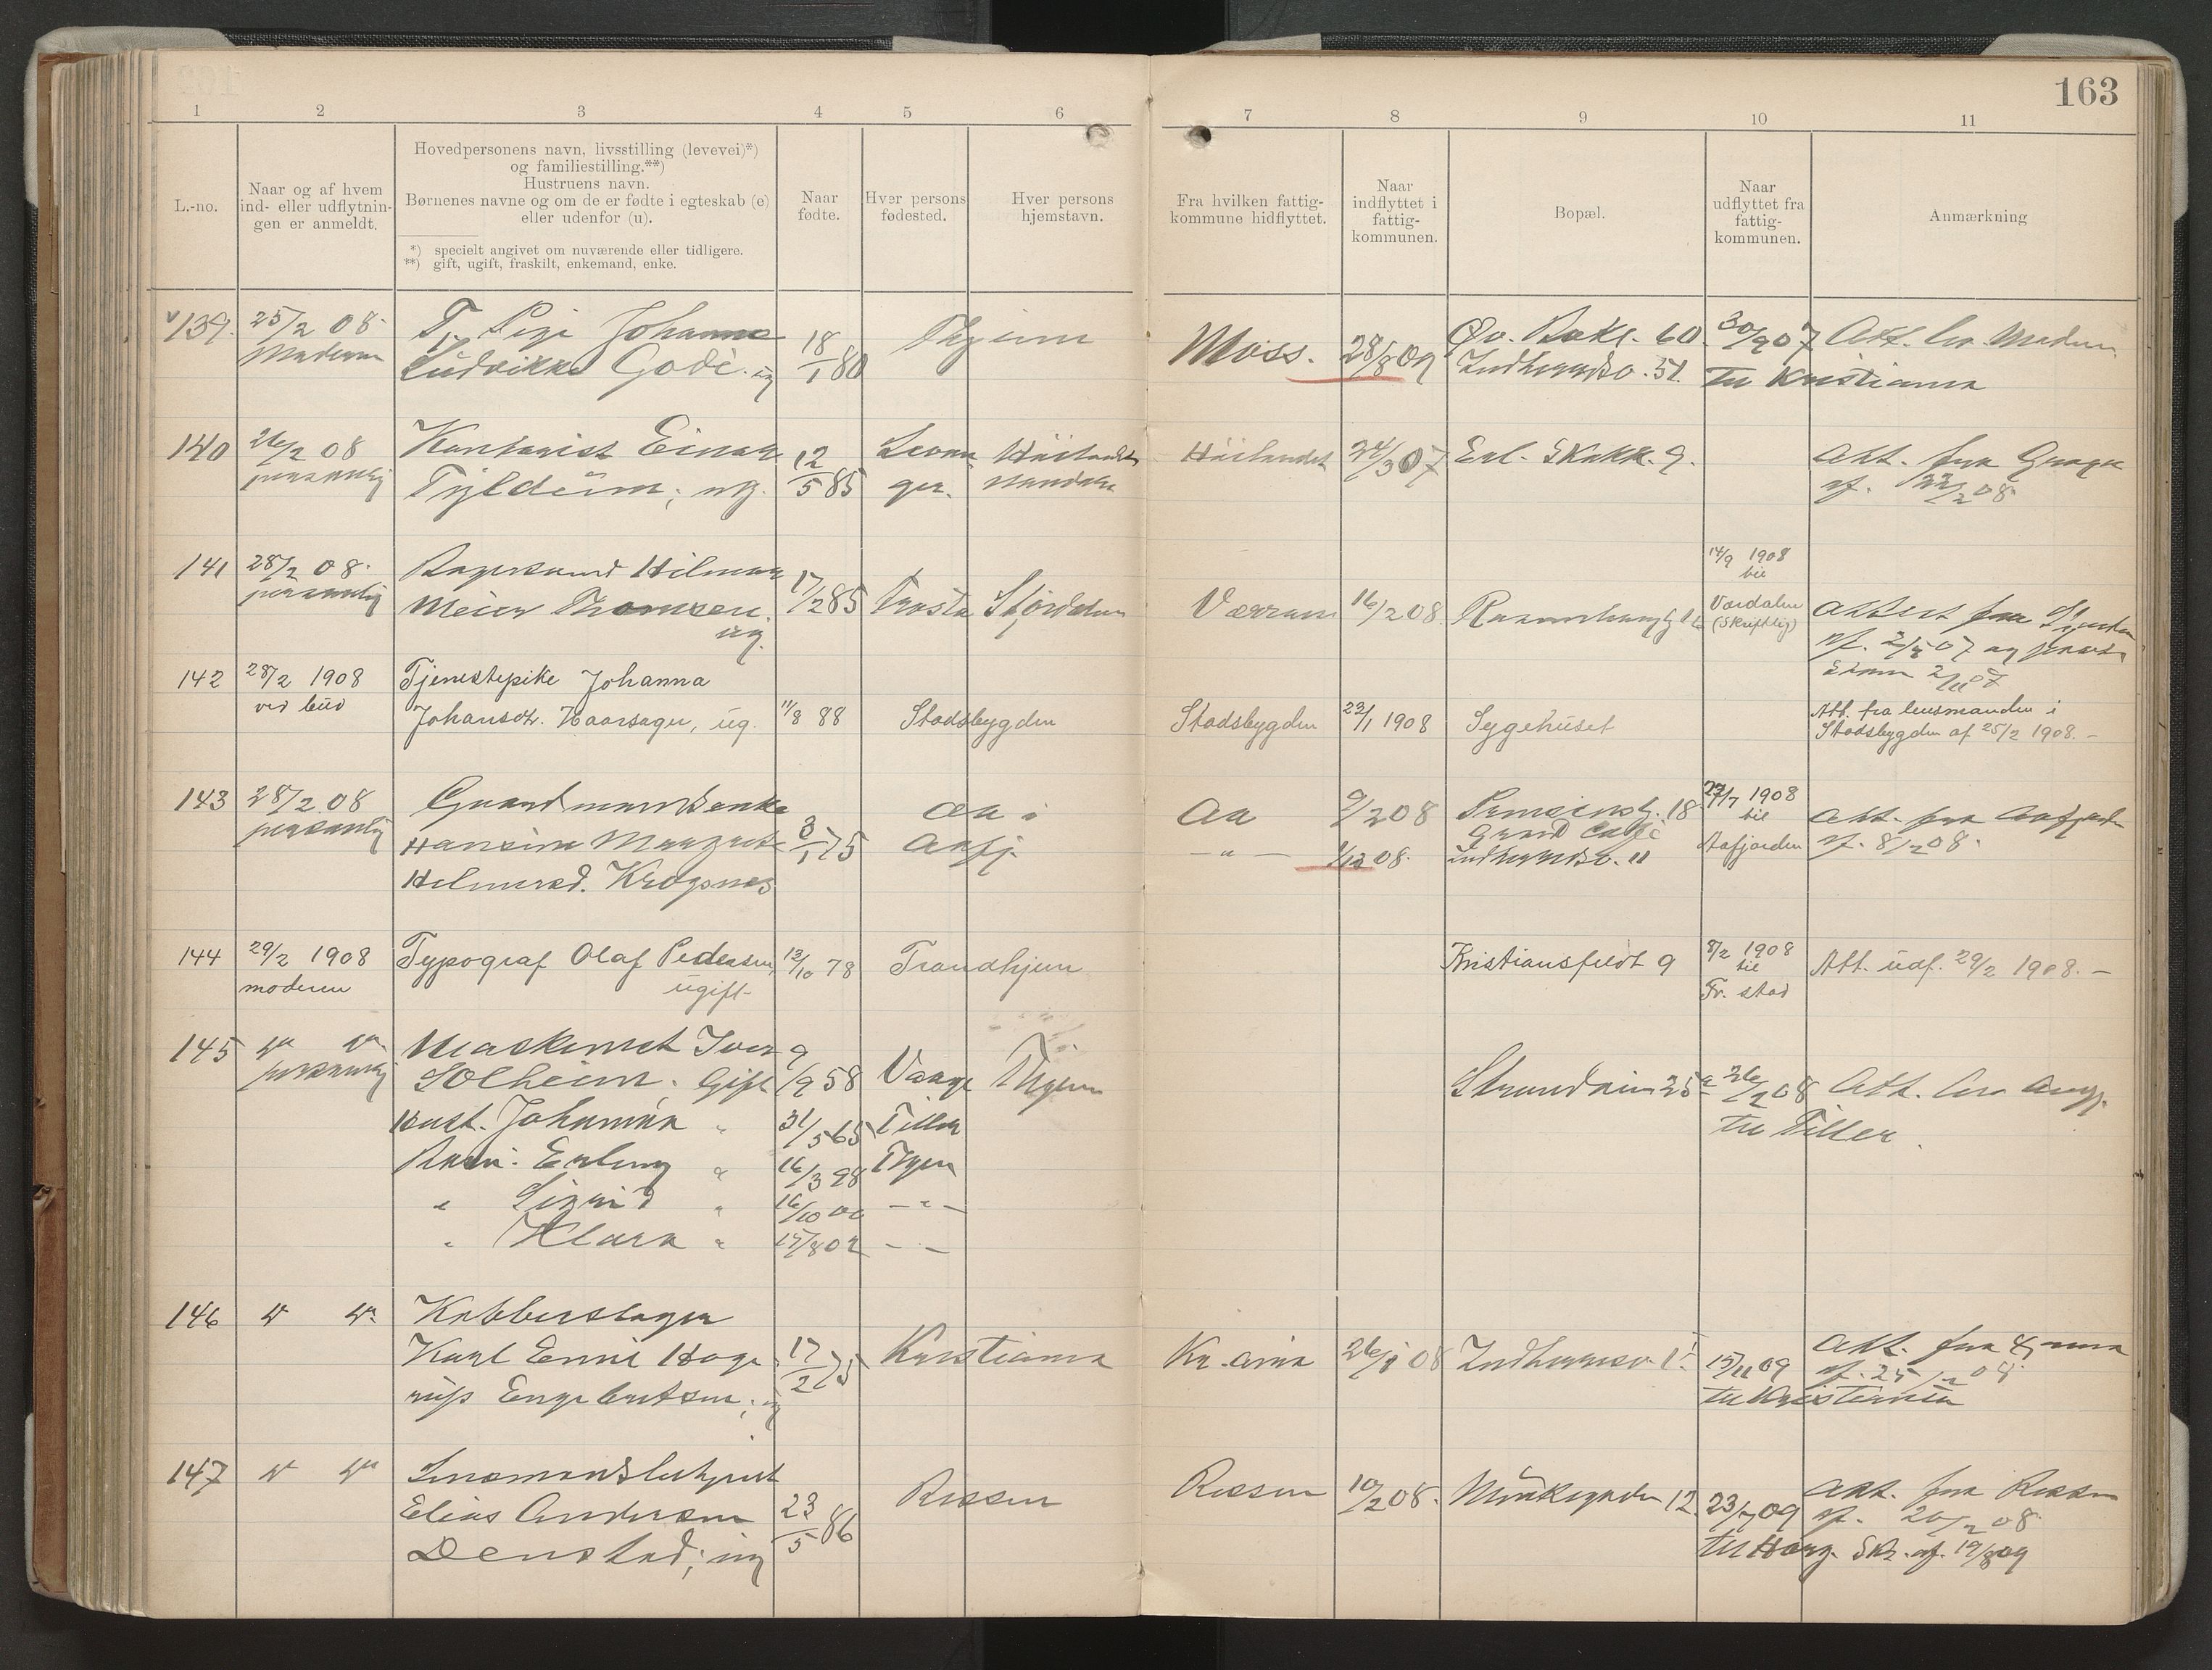 163
1 2 3 4 5 6 7 8 9 10 11
L.-no.
Naar og af hvem
ind- eller udflytnin-
gen er anmeldt.
Hovedpersonens navn, livsstilling (levevei)*)
og familiestilling.**)
Hustruens navn.
Børnenes navne og om de er fødte i egteskab (e)
eller udenfor (u).
*) specielt angivet om nuværende eller tidligere.
**) gift, ugift, fraskilt, enkemand, enke.
Naar
fødte.
Hver persons
fødested.
Hver persons
hjemstavn.
Fra hvilken fattig-
kommune hidflyttet.
Naar
indflyttet i
fattig-
kommunen.
Bopæl.
Naar
udflyttet fra
fattig-
kommunen.
Anmærkning
139. 25/2 08. T. Pige Johanna 18/1 80 Thjem Moss. 28/8 09 Øv. Bakl. 60 30/9 07 Att. lev. Modern
Moderen Ludvikke Godé. ug Indherredsv. 51. til Kristiania
140 26/2 08 Kontorist Einar 12/5 85 Levan Höilandet Höilandet 24/3 07 Erl. Skakk. 9. Att. fra
personlig Tyldum; ug. ger. Namdalen af. 22/2 08
141 28/2 08. Hilmar 17/2 85 Frosta Stjørdalen Værran 16/2 08 14/9 1908
til
personlig Meier Thomsen. Værdalen
(Skriftlig) Attest fra
ug. af.
142 28/2 1908 Tjenestepike Johanna
ved bud Johansdtr. Haarsager, ug. 11/8 88 Stadsbygden Stadsbygden 23/1 1908 Sygehuset Att. fra lensmanden i
Stadsbygden af 25/2 1908. —
143 28/2 08 Gaardmandsenke Aa i Aa 9/2 08 18 27/7 1908
til Att. fra Aafjorden
personlig Hansine Margrete 3/1 75 Aafj. — " — 1/12 08. Grand Café
Indherredsv. 11 Aafjorden af. 8/2 08.
Helmersd. Krogsnes
144 29/2 1908 Typograf Olaf Pedersen, 13/10 78 Trondhjem Kristiansfeldt 9 8/2 1908
til Att. udf. 29/2 1908. —
moderen ugift Fr. stad
145 " " Maskinist Iver 9/9 58 Vaage Thjem Strandvein 25 a 26/2 08 Att. lev.
personlig Solheim. Gift til Tiller.
Hust. Johanna " 31/5 65 Tiller
Barn: Erling " 16/3 98 Thjem
" Sigrid " 16/10 00 — " —
" Klara " 15/8 02 — " —
146 " " Kobberslager
Karl Emil Hage 17/2 75 Kristiania Kr.ania 26/1 08 Indherredsv. 15/11 09 Att. fra
rup Engebretsen; ug til Kristiania af. 25/2 08.
147 " " Lensmandsbetjent Rissen Rissen 10/2 08. Munkegaden 12. 23/7 09 Att. fra Rissen
Elias Andersen 23/5 86 af. 20/2 08.
Denstad; ug Skr. af. 19/8 09